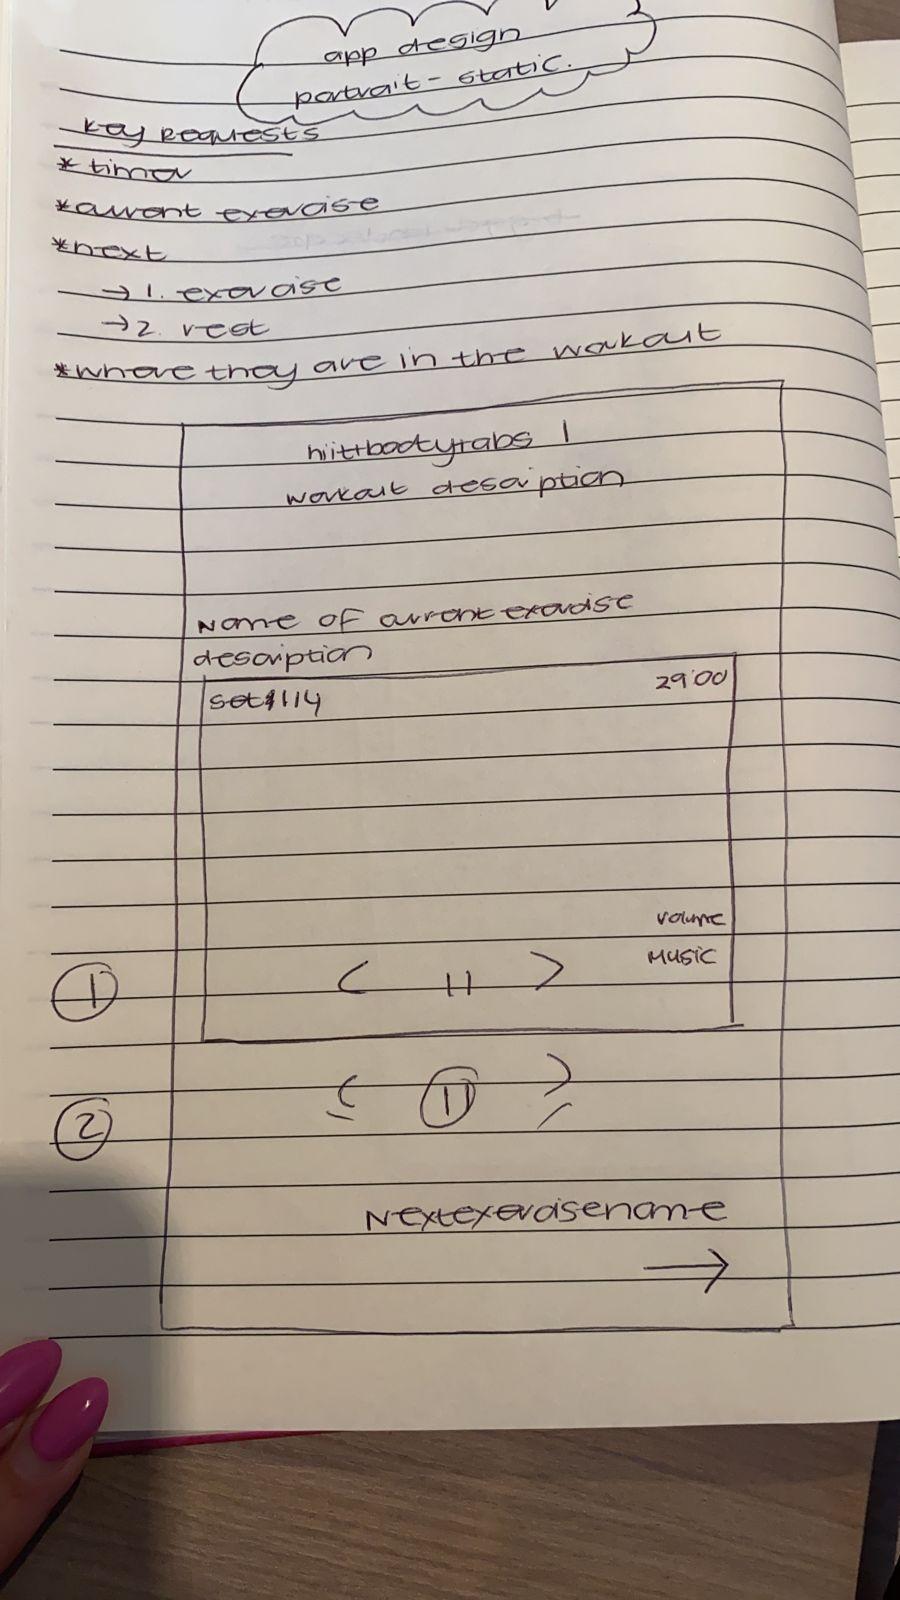 app design
portrait - static.
key requests
* timer
* current exercise
* next
→ 1. exercise
→ 2. rest
* where they are in the workout
hiit+booty+abs 1
workout description
Name of current exercise
description
29:00
volume
MUSIC
< || >
1
< || >
2
Next exercise name
→